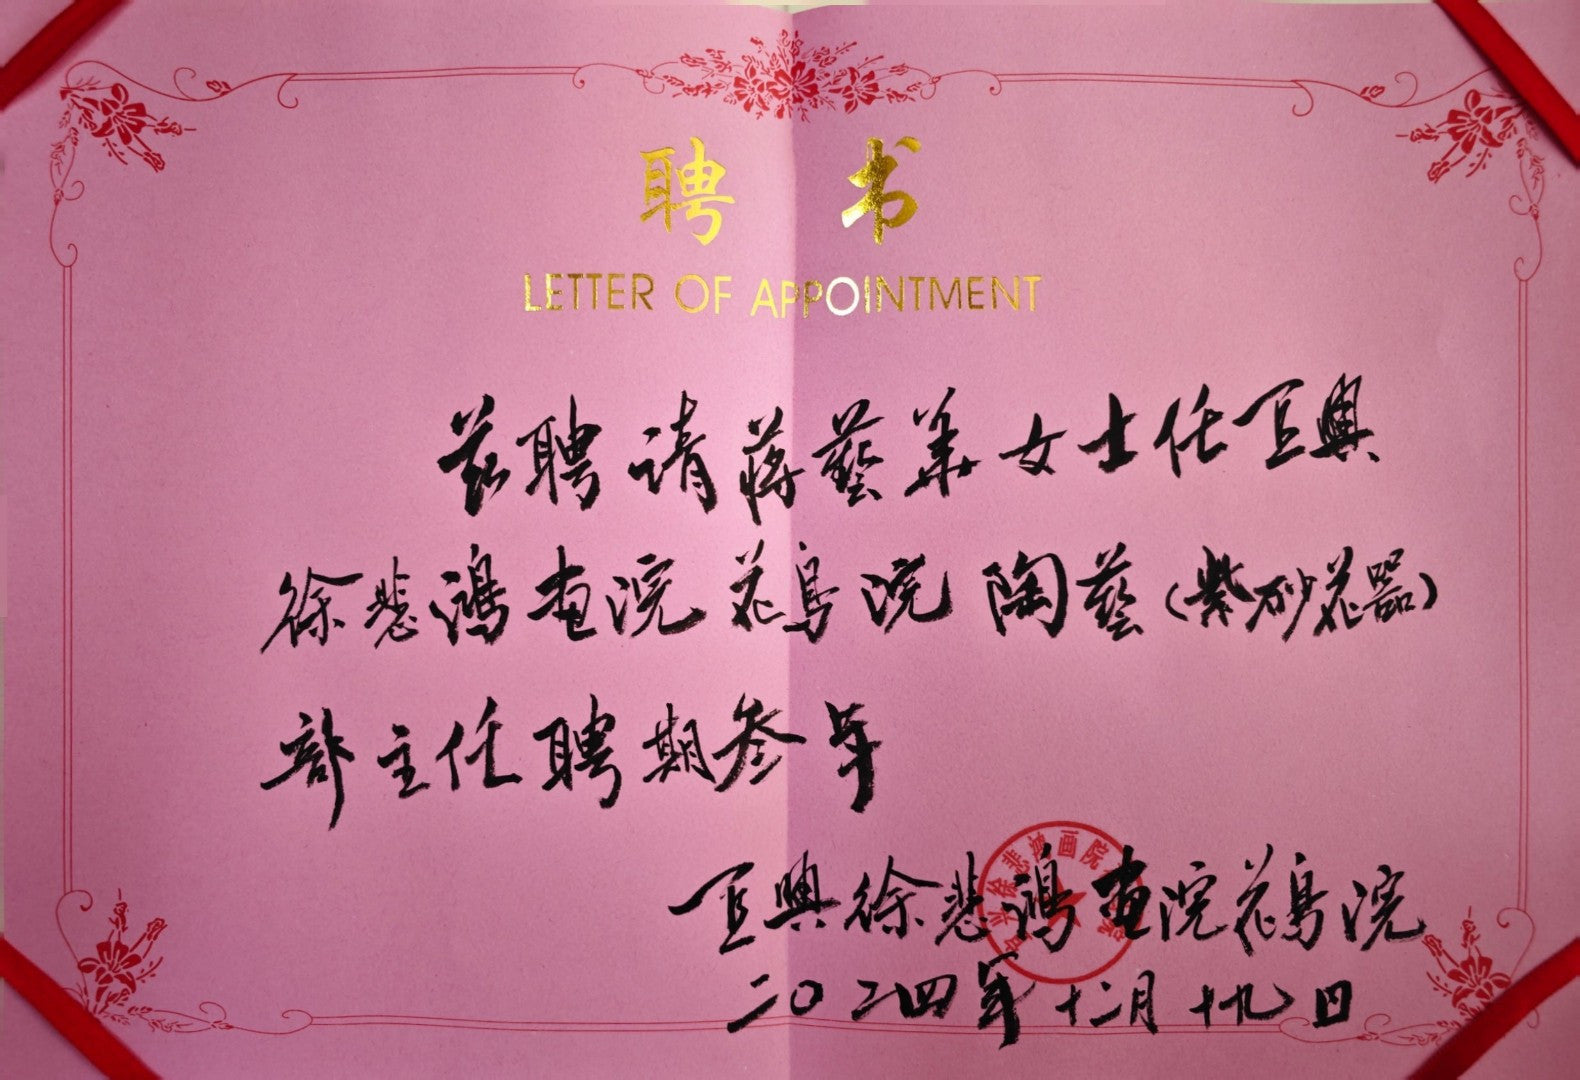 聘书
LETTER OF APPOINTMENT
兹聘请蒋藝华女士任宜興
徐悲鴻画院花鸟院陶藝(紫砂花器)
部主任聘期叁年
宜興徐悲鴻画院花鸟院
二〇二四年十二月十九日
徐悲鸿画院